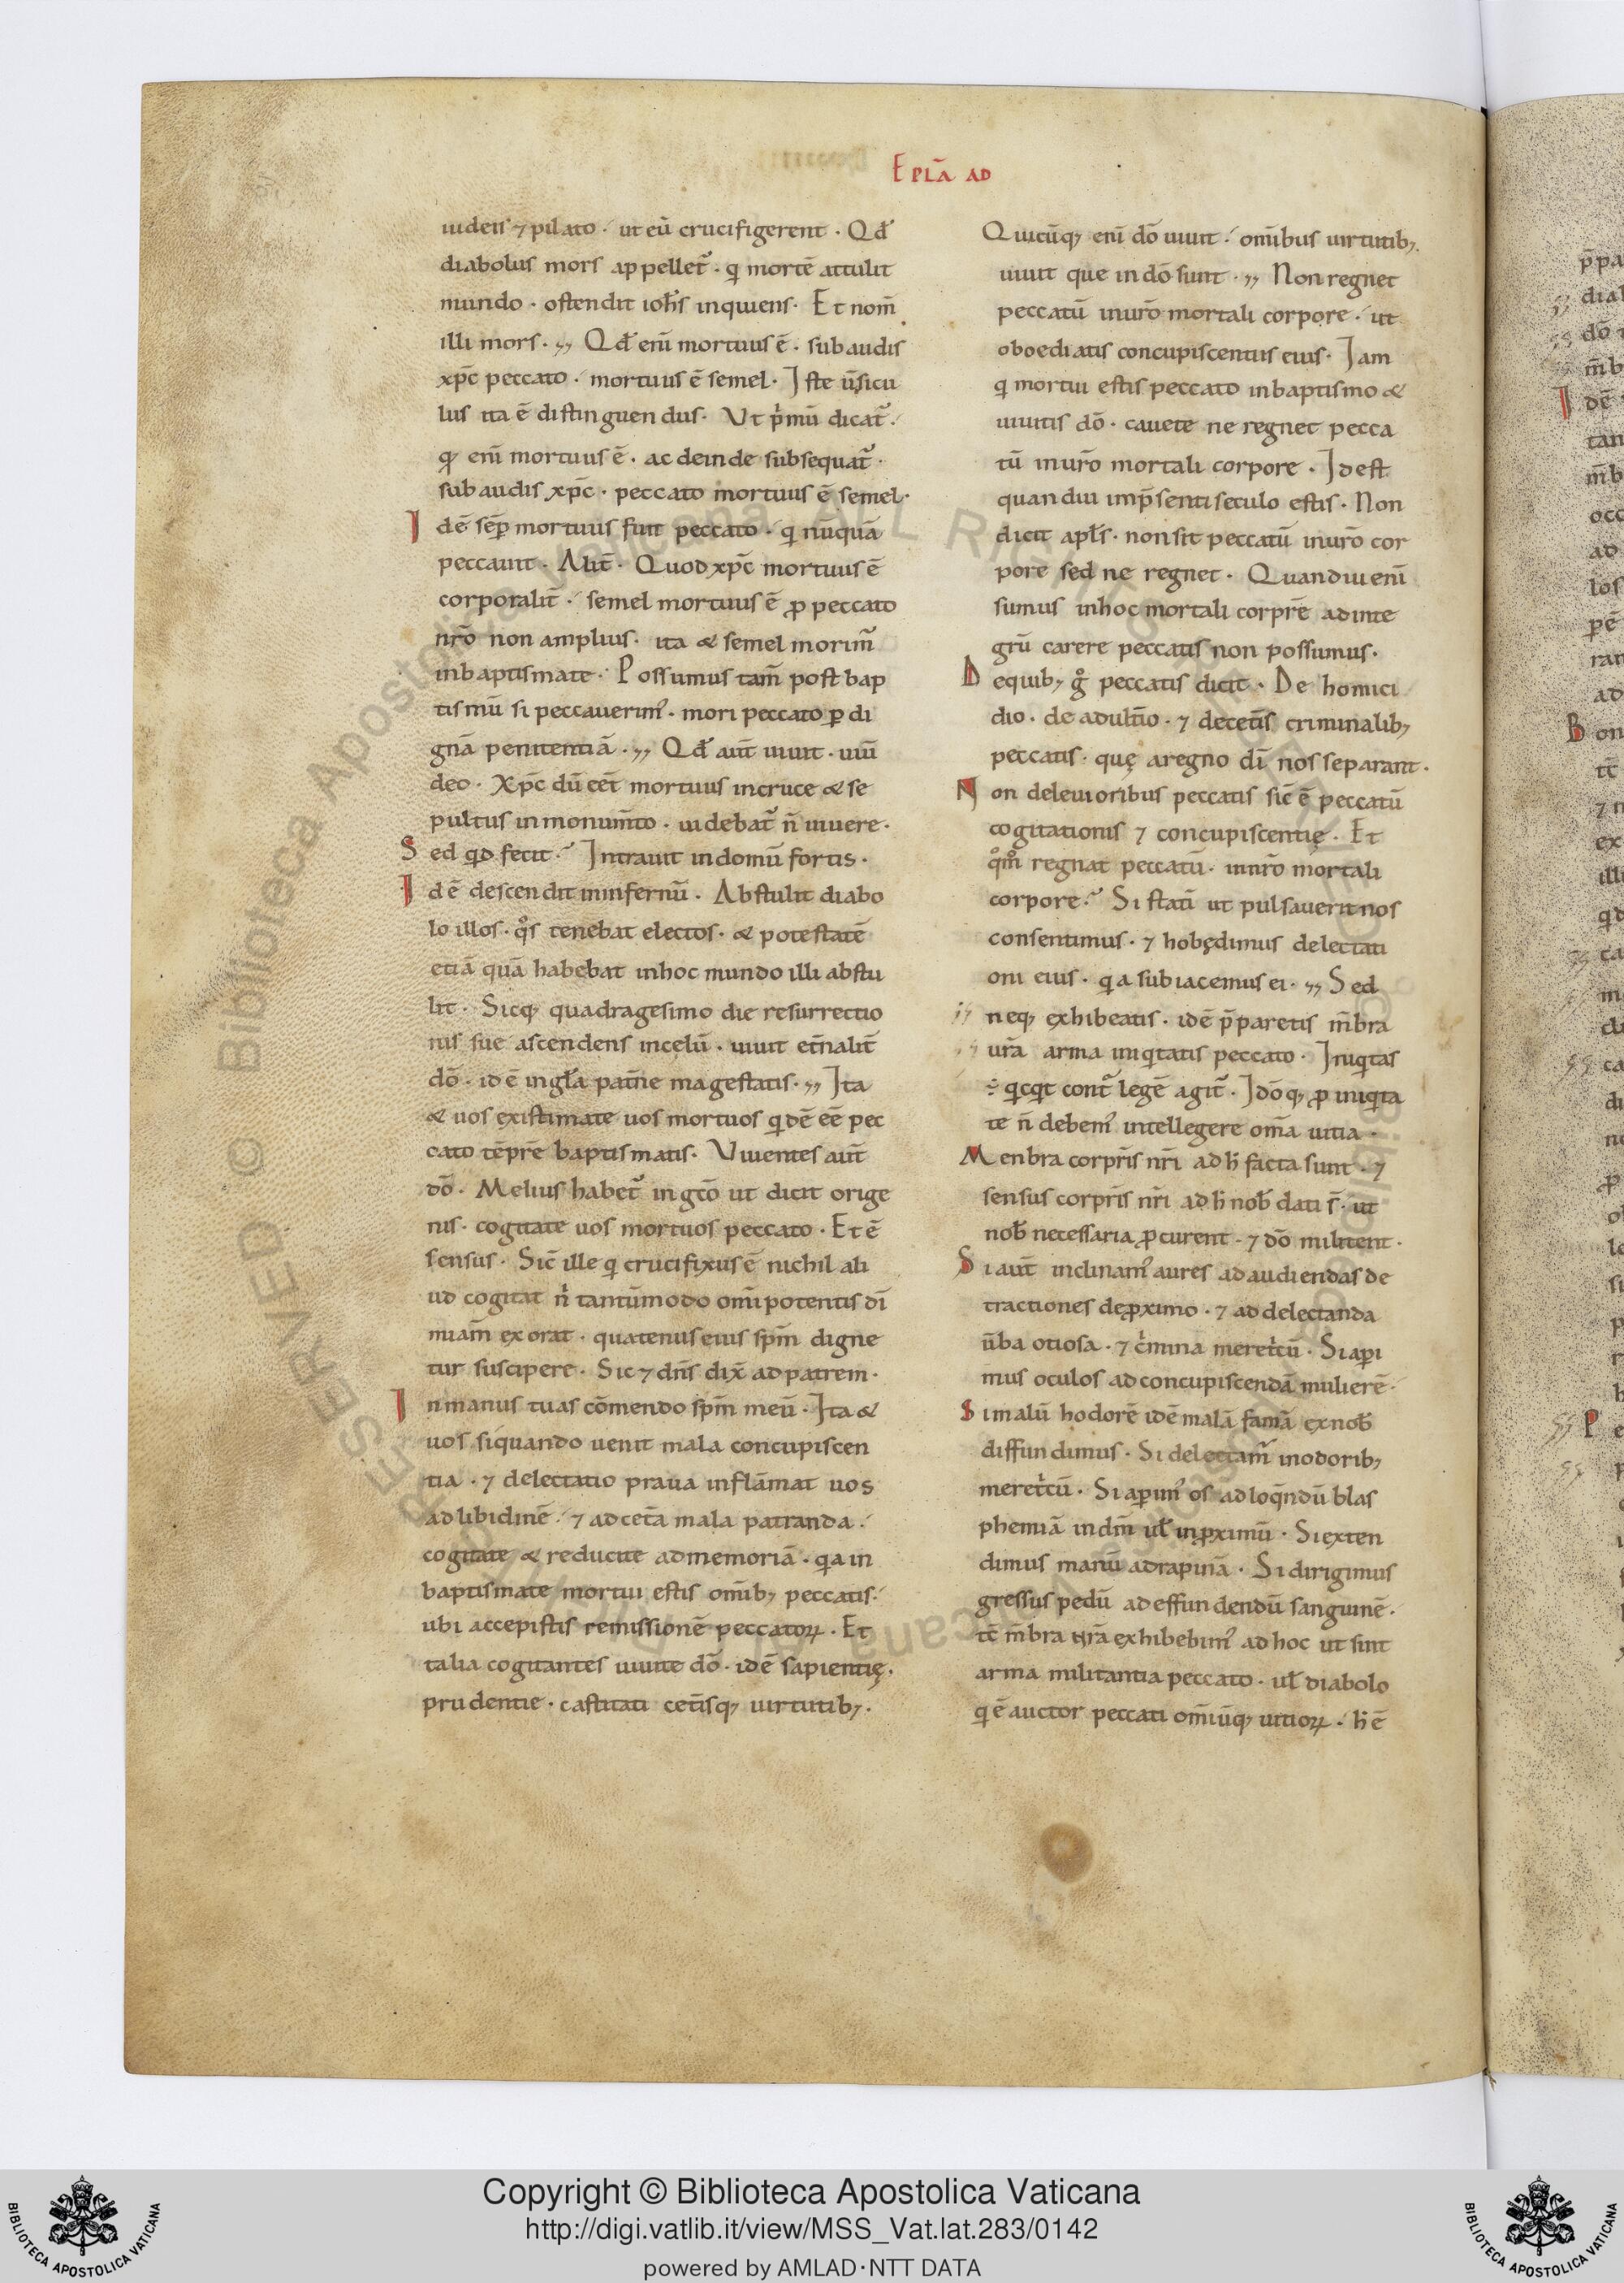 EPLA̅ AD
iudeis ⁊ pilato · ut eu̅ crucifigerent · Qđ
diabolus mors appellet᷑ · q̇ morte̅ attulit
mundo · ostendit ioh̅s inquiens · Et nom̅
illi mors · ,, Qđ eni̅ mortuus e̅ · subaudis
xp̅c peccato · mortuus e̅ semel · Iste u̅sicu
lus ita e̅ distinguendus · Vt ṗmu̅ dicat᷑ ·
qđ eni̅ mortuus e̅ · ac deinde subsequat᷑ ·
subaudis xp̅c · peccato mortuus e̅ semel ·
Ide̅ se̅ꝑ mortuus fuit peccato · q̇ nu̅qua̅
peccauit · Alit̅ · Quod xp̅c mortuus e̅
corporalit̅ · semel mortuus e̅ ꝓ peccato
nr̅o non amplius · ita & semel morim᷑
inbaptismate · Possumus tam̅ post bap
tismu̅ si peccauerim᷒ · mori peccato ꝑ di
gna̅ penitentia̅ · ,, Qđ aut̅ uiuit · uiu̅
deo · Xp̅c du̅ eet̅ mortuus incruce & se
pultus inmonum̅to · uidebat᷑ n̅ uiuere ·
Sed qd fecit ·̃ Intrauit indomu̅ fortis ·
Ide̅ descendit ininfernu̅ · Abstulit diabo
lo illos · q̊s tenebat electos · & potestate̅
etia̅ qua̅ habebat inhoc mundo illi abstu
lit · Sicq; quadragesimo die resurrectio
nis sue ascendens incęlu̅ · uiuit et̅nalit̅
do̅ · ide̅ ingl̅a patn̅e magestatis · ,, Ita
& uos existimate uos mortuos q̇de̅ ee̅ pec
cato te̅pr̅e baptismatis · Viuentes aut̅
do̅ · Melius habet᷑ in gc̅o ut dicit orige
nis · cogitate uos mortuos peccato · Et e̅
sensus · Sic̅ ille q̇ crucifixus e̅ nichil ali
ud cogitat ṅ tantu̅modo omi̅potentis di̅
miam̅ exorat · quatenus eius sp̅m digne
tur suscipere · Sic ⁊ dn̅s dix̅ adpatrem ·
Inmanus tuas co̅mendo sp̅m meu̅ · Ita &
uos siquando uenit mala concupiscen
tia · ⁊ delectatio praua infla̅mat uos
adlibidine̅ · ⁊ adcet̅a mala patranda ·
cogitate & reducite admemoria̅ · q̇a in
baptismate mortui estis omi̅b; peccatis ·
ubi accepistis remissione̅ peccatoꝝ · Et
talia cogitantes uiuite do̅ · ide̅ sapientię ·
prudentie · castitati cet̅isq; uirtutib; ·
Quicu̅q; eni̅ do̅ uiuit · omi̅bus uirtutib;
uiuit que indo̅ sunt · ,, Non regnet
peccatu̅ inur̅o mortali corpore · ut
oboediatis concupiscentiis eius · Iam
q̇ mortui estis peccato inbaptismo &
uiuitis do̅ · cauete ne regnet pecca
tu̅ inur̅o mortali corpore · Idest
quandiu imp̅senti seculo estis · Non
dicit apl̅s · nonsit peccatu̅ inur̅o cor
pore sed ne regnet · Quandiu eni̅
sumus inhoc mortali corpr̅e adinte
gru̅ carere peccatis non possumus ·
Dequib; g̊ peccatis dicit · De homici
dio · de adult̅io · ⁊ decet̅is criminalib;
peccatis · quę aregno di̅ nos separant ·
Non deleuioribus peccatis sic̅ e̅ peccatu̅
cogitationis ⁊ concupiscentię · Et
q̊m̊ regnat peccatu̅ · innr̅o mortali
corpore ·̃ Si stati̅ ut pulsauerit nos
consentimus · ⁊ hobędimus delectati
oni eius · q̇a subiacemus ei · ,, Sed
neq; exhibeatis · ide̅ p̅paretis m̅bra
ur̅a arma iniq̇tatis peccato · Iniq̇tas
÷ q̇cq̇t cont᷑ lege̅ agit᷑ · Ido̅q; ꝓ iniq̇ta
te n̅ debem᷒ intellegere om̅a uitia ·
Menbra corpr̅is nr̅i adh̅ facta sunt · ⁊
sensus corpr̅is nr̅i adh̅ nob̅ dati s̅ · ut
nob̅ necessaria ꝓcurent · ⁊ do̅ militent ·
Si aut̅ inclinam᷒ aures adaudiendas de
tractiones deꝓximo · ⁊ addelectanda
u̅ba otiosa · ⁊ ċmina mereṫcu̅ · Si aꝑi
mus oculos adconcupiscenda̅ muliere̅ ·
Si malu̅ hodore̅ ide̅ mala̅ fama̅ exnob̅
diffundimus · Si delectam᷑ inodorib;
mereṫcu̅ · Si aꝑim᷒ os adloq̅ndu̅ blas
phemia̅ indm̅ ul̅ inꝓximu̅ · Si exten
dimus manu̅ adrapina̅ · Si dirigimus
gressus pedu̅ adeffundendu̅ sanguine̅ ·
tc̅ m̅bra nr̅a exhibebim᷒ adhoc ut sint
arma militantia peccato · ul̅ diabolo
q̇ e̅ auctor peccati omi̅u̅q; uitioꝝ · h̅ e̅
Copyright © Biblioteca Apostolica Vaticana
http://digi.vatlib.it/view/MSS_Vat.lat.283/0142
powered by AMLAD·NTT DATA
BIBLIOTECA APOSTOLICA VATICANA
BIBLIOTECA APOSTOLICA VATICANA